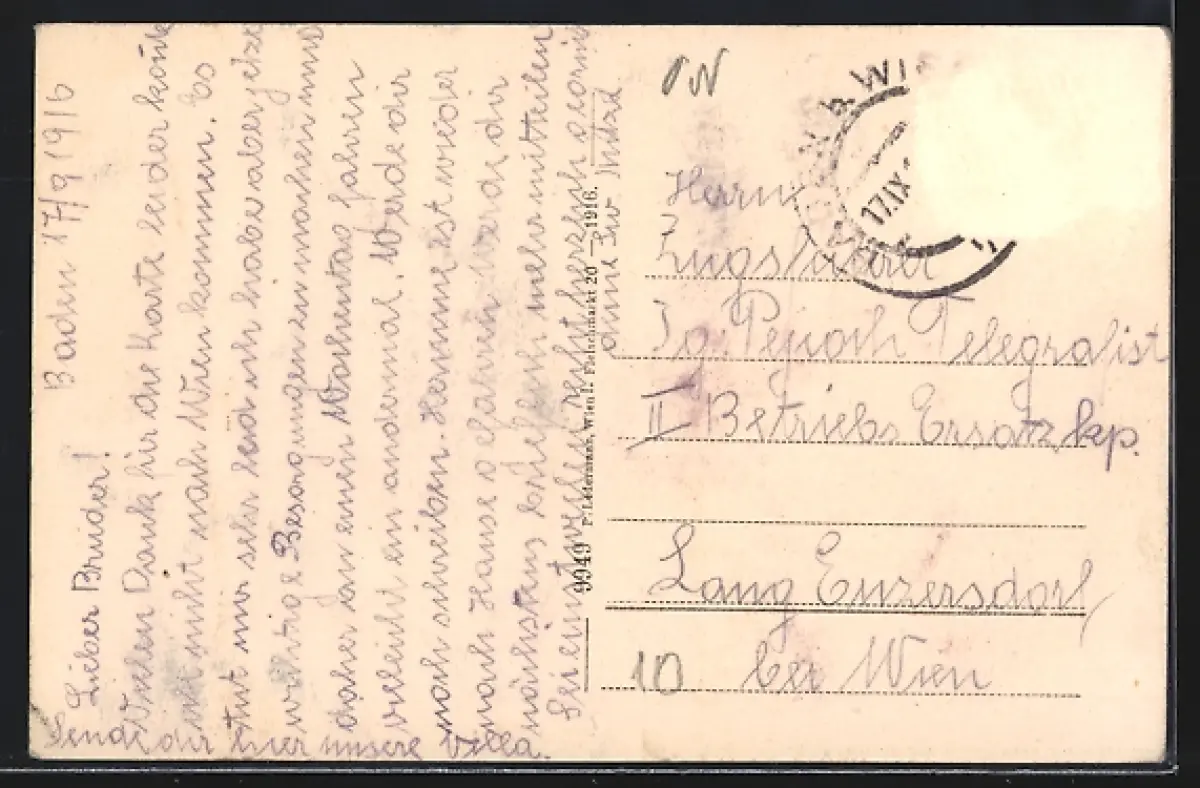 Baden 17/9 1916
Lieber Bruder!
Vielen Dank für die Karte leider konte
nicht nach Wien kommen. Es
tut mir sehr leid ich habe aber jetzt
wichtige Besorgungen zu machen und
daher an einen Wochentag fahren
vieleicht ein andermal. Werde dir
noch schreiben. Hermine ist wieder
nach Hause gefahren werde dir
nächstens brieflich mehr mitteilen
Sei einstweilen recht herzlich
Sende dir hier unsere Villa.
9949 P. Ledermann, Wien I. Fleischmarkt 20 1916.
17.IX
Herrn
Zugsführer
Ig. Telegrafist
II Betriebs Ersatz kp.
Lang Enzersdorf
bei Wien
10